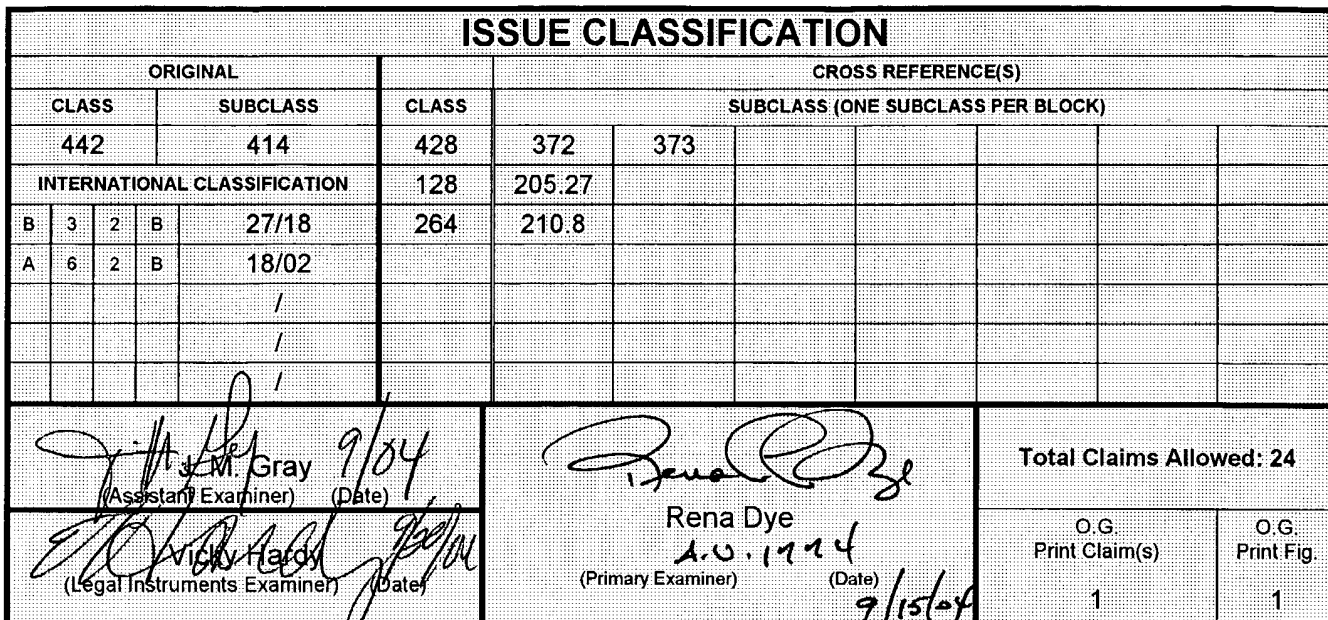 ISSUE CLASSIFICATION
ORIGINAL CROSS REFERENCE(S)
CLASS SUBCLASS CLASS SUBCLASS (ONE SUBCLASS PER BLOCK)
442 414 428 372 373
INTERNATIONAL CLASSIFICATION 128 205.27
B 3 2 B 27/18 264 210.8
A 6 2 B 18/02
/
/
/
J. M. Gray 9/04
(Assistant Examiner) (Date)
Vicky Hardy
(Legal Instruments Examiner) (Date)
Rena Dye
A.U. 1774
(Primary Examiner) (Date)
9/15/04
Total Claims Allowed: 24
O.G. Print Claim(s)
1
O.G. Print Fig.
1